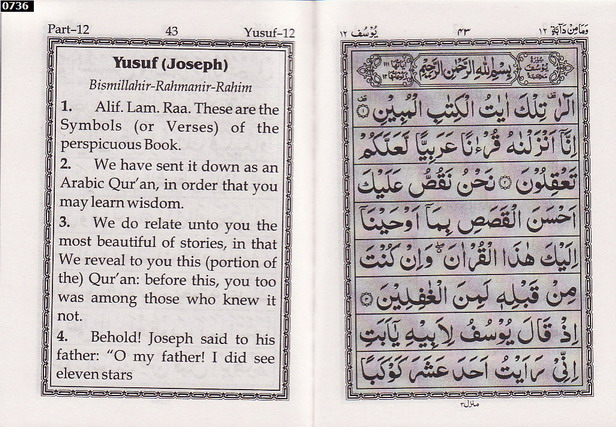 0736
Part–12 43 Yusuf–12
Yusuf (Joseph)
Bismillahir-Rahmanir-Rahim
1. Alif. Lam. Raa. These are the
Symbols (or Verses) of the
perspicuous Book.
2. We have sent it down as an
Arabic Qur’an, in order that you
may learn wisdom.
3. We do relate unto you the
most beautiful of stories, in that
We reveal to you this (portion of
the) Qur’an: before this, you too
was among those who knew it
not.
4. Behold! Joseph said to his
father: “O my father! I did see
eleven stars
وَمَا مِنْ دَآبَّةٍ ١٢ ٤٣ يُوْسُف ١٢
بِسْمِ اللهِ الرَّحْمٰنِ الرَّحِيْمِ
الٓرٰ تِلْكَ اٰيٰتُ الْكِتٰبِ الْمُبِيْنِ ١
اِنَّآ اَنْزَلْنٰهُ قُرْءٰنًا عَرَبِيًّا لَّعَلَّكُمْ
تَعْقِلُوْنَ ٢ نَحْنُ نَقُصُّ عَلَيْكَ
اَحْسَنَ الْقَصَصِ بِمَآ اَوْحَيْنَآ
اِلَيْكَ هٰذَا الْقُرْاٰنَ وَاِنْ كُنْتَ
مِنْ قَبْلِهٖ لَمِنَ الْغٰفِلِيْنَ ٣
اِذْ قَالَ يُوْسُفُ لِاَبِيْهِ يٰٓاَبَتِ
اِنِّيْ رَاَيْتُ اَحَدَ عَشَرَ كَوْكَبًا
منزل ٣